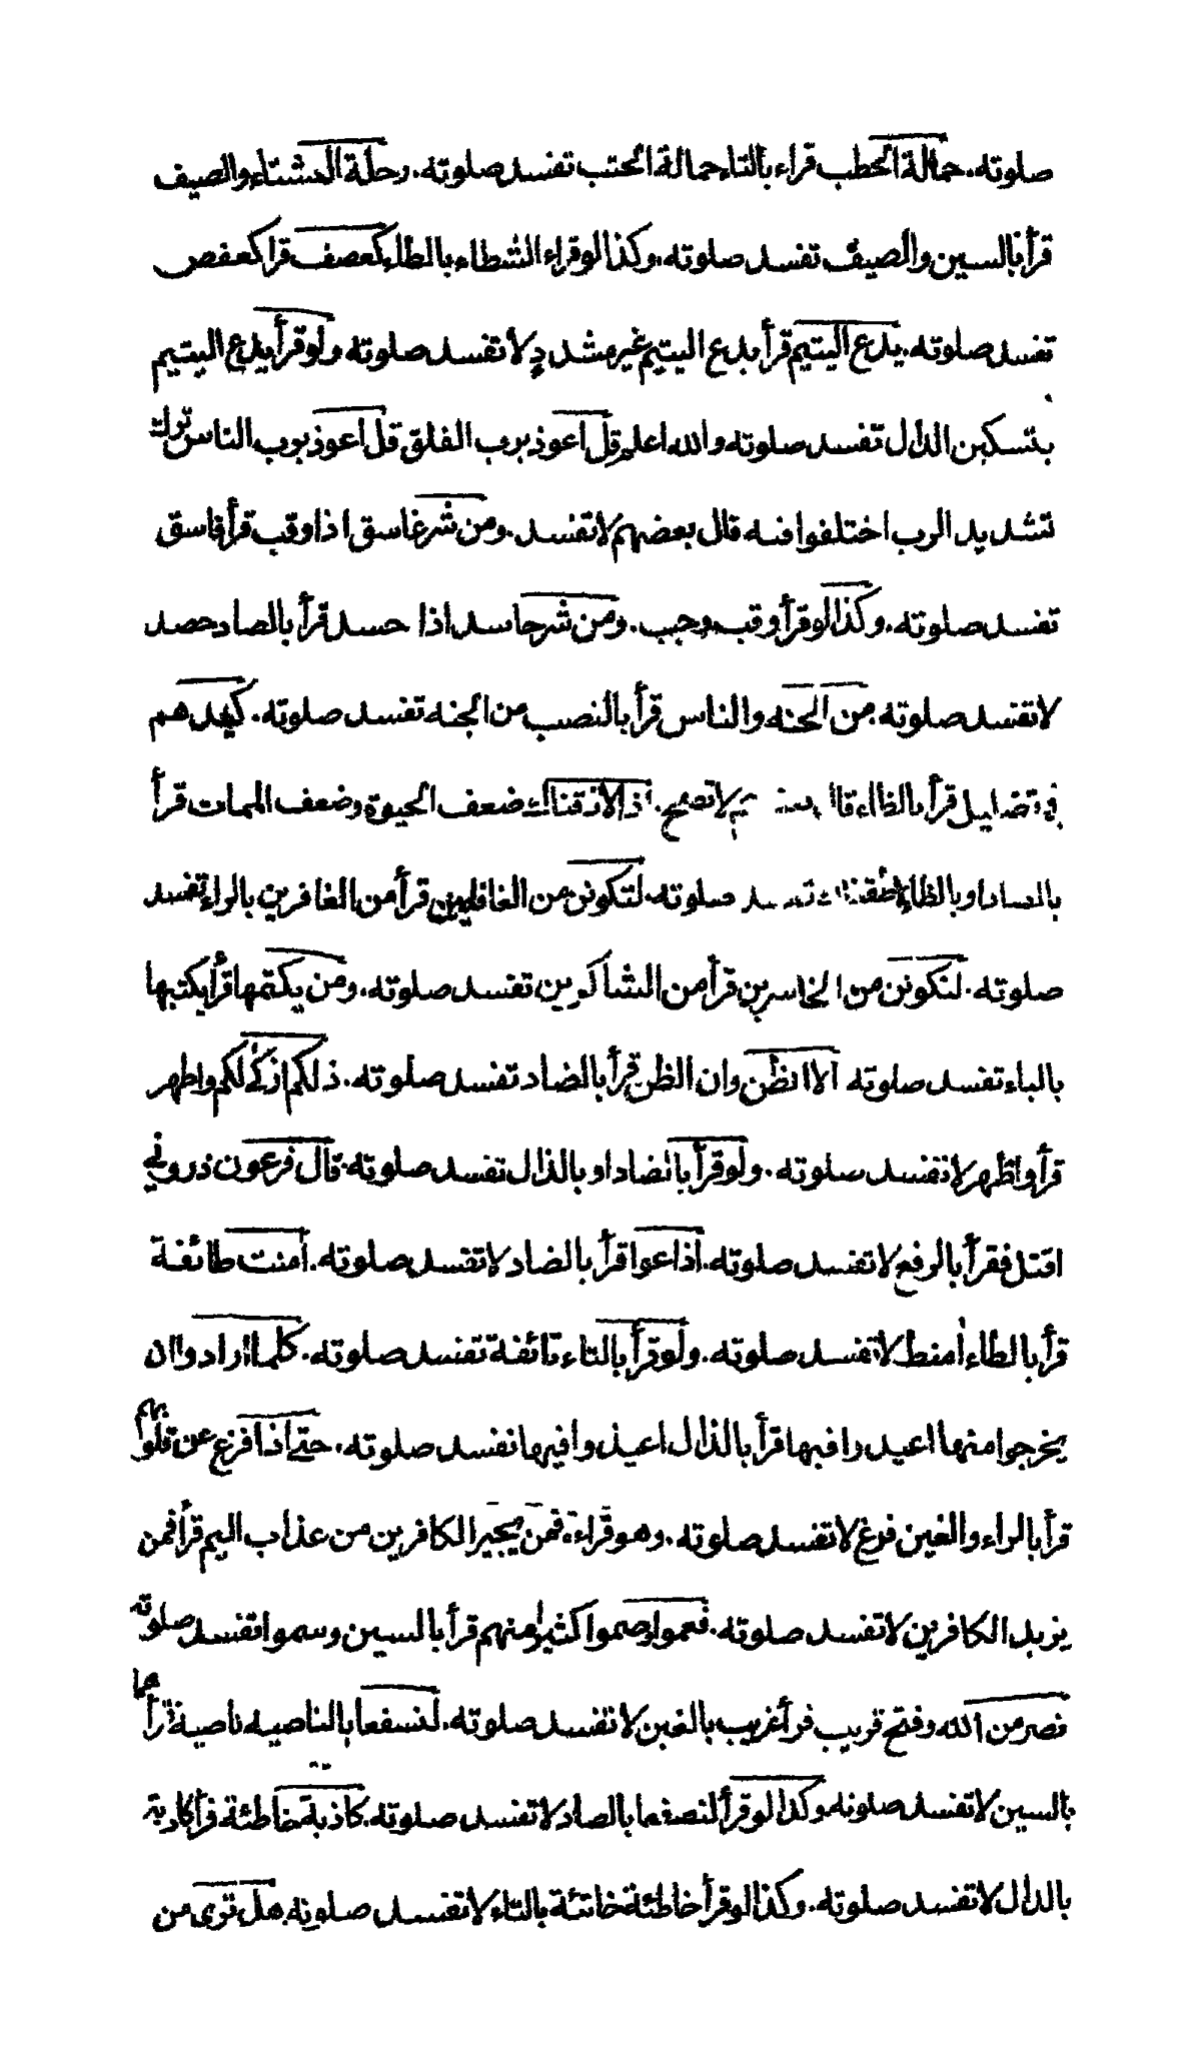 صلوته. حمالة الحطب قراء بالتاء حمالة الحتب تفسد صلوته. رحلة الشتاء والصيف
قرأ بالسين والصيف تفسد صلوته. وكذا لو قراء الشطاء بالطاء كعصف قرا كعفص
تفسد صلوته. يدع اليتيم قرأ يدع اليتيم غير مشدد لا تفسد صلوته ولو قرأ يدع اليتيم
بتسكين الدال تفسد صلوته والله اعلم قل اعوذ برب الفلق قل اعوذ برب الناس ترك
تشديد الرب اختلفوا فيه قال بعضهم لا تفسد. ومن شر غاسق اذا وقب قرأ فاسق
تفسد صلوته. وكذا لو قرأ وقب وجب. ومن شر حاسد اذا حسد قرأ بالصاد حصد
لا تفسد صلوته. من الجنه والناس قرأ بالنصب من الجنه تفسد صلوته. كيدهم
في تضليل قرأ بالظاء لا تصح. اذ الاذقناك ضعف الحيوة وضعف الممات قرأ
بالصاد او بالظاء تفسد صلوته. لتكونن من الغافلين قرأ من الغافرين بالراء تفسد
صلوته. لنكونن من الخاسرين قرأ من الشاكرين تفسد صلوته. ومن يكتمها قرأ يكتبها
بالباء تفسد صلوته الا الظن وان الظن قرأ بالضاد تفسد صلوته. ذلكم ازكى لكم واطهر
قرأ واظهر لا تفسد صلوته. ولو قرأ بالضاد او بالذال تفسد صلوته. قال فرعون ذروني
اقتل فقرأ بالرفع لا تفسد صلوته. اذاعوا قرأ بالضاد لا تفسد صلوته. امنت طائفة
قرأ بالطاء امنط لا تفسد صلوته. ولو قرأ بالتاء تائفة تفسد صلوته. كلما ارادوا ان
يخرجوا منها اعيدوا فيها قرأ بالذال اعيذوا فيها تفسد صلوته. حتى اذا فزع عن قلوبهم
قرأ بالراء والغين فرغ لا تفسد صلوته. وهو قراءة. فمن يجير الكافرين من عذاب اليم قرأ فمن
يزيد الكافرين لا تفسد صلوته. فعموا وصموا كثير منهم قرأ بالسين وسموا تفسد صلوته
نصر من الله وفتح قريب قرأ غريب بالغين لا تفسد صلوته. لنسفعا بالناصيه ناصية قرأهما
بالسين لا تفسد صلوته وكذا لو قرأ لنصفعا بالصاد لا تفسد صلوته. كاذبة خاطئة قرأ كادبة
بالدال لا تفسد صلوته. وكذا لو قرأ خاطئة خاتئة بالتاء لا تفسد صلوته. هل ترى من